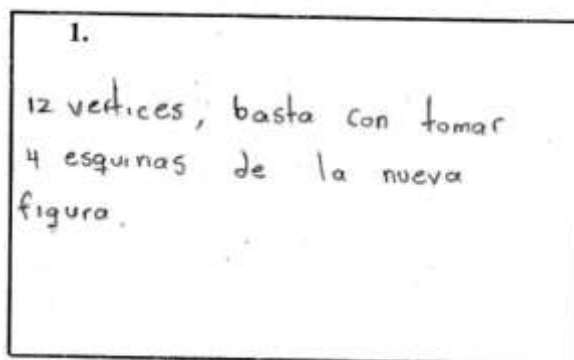 1.
12 vertices, basta con tomar
4 esquinas de la nueva
figura.